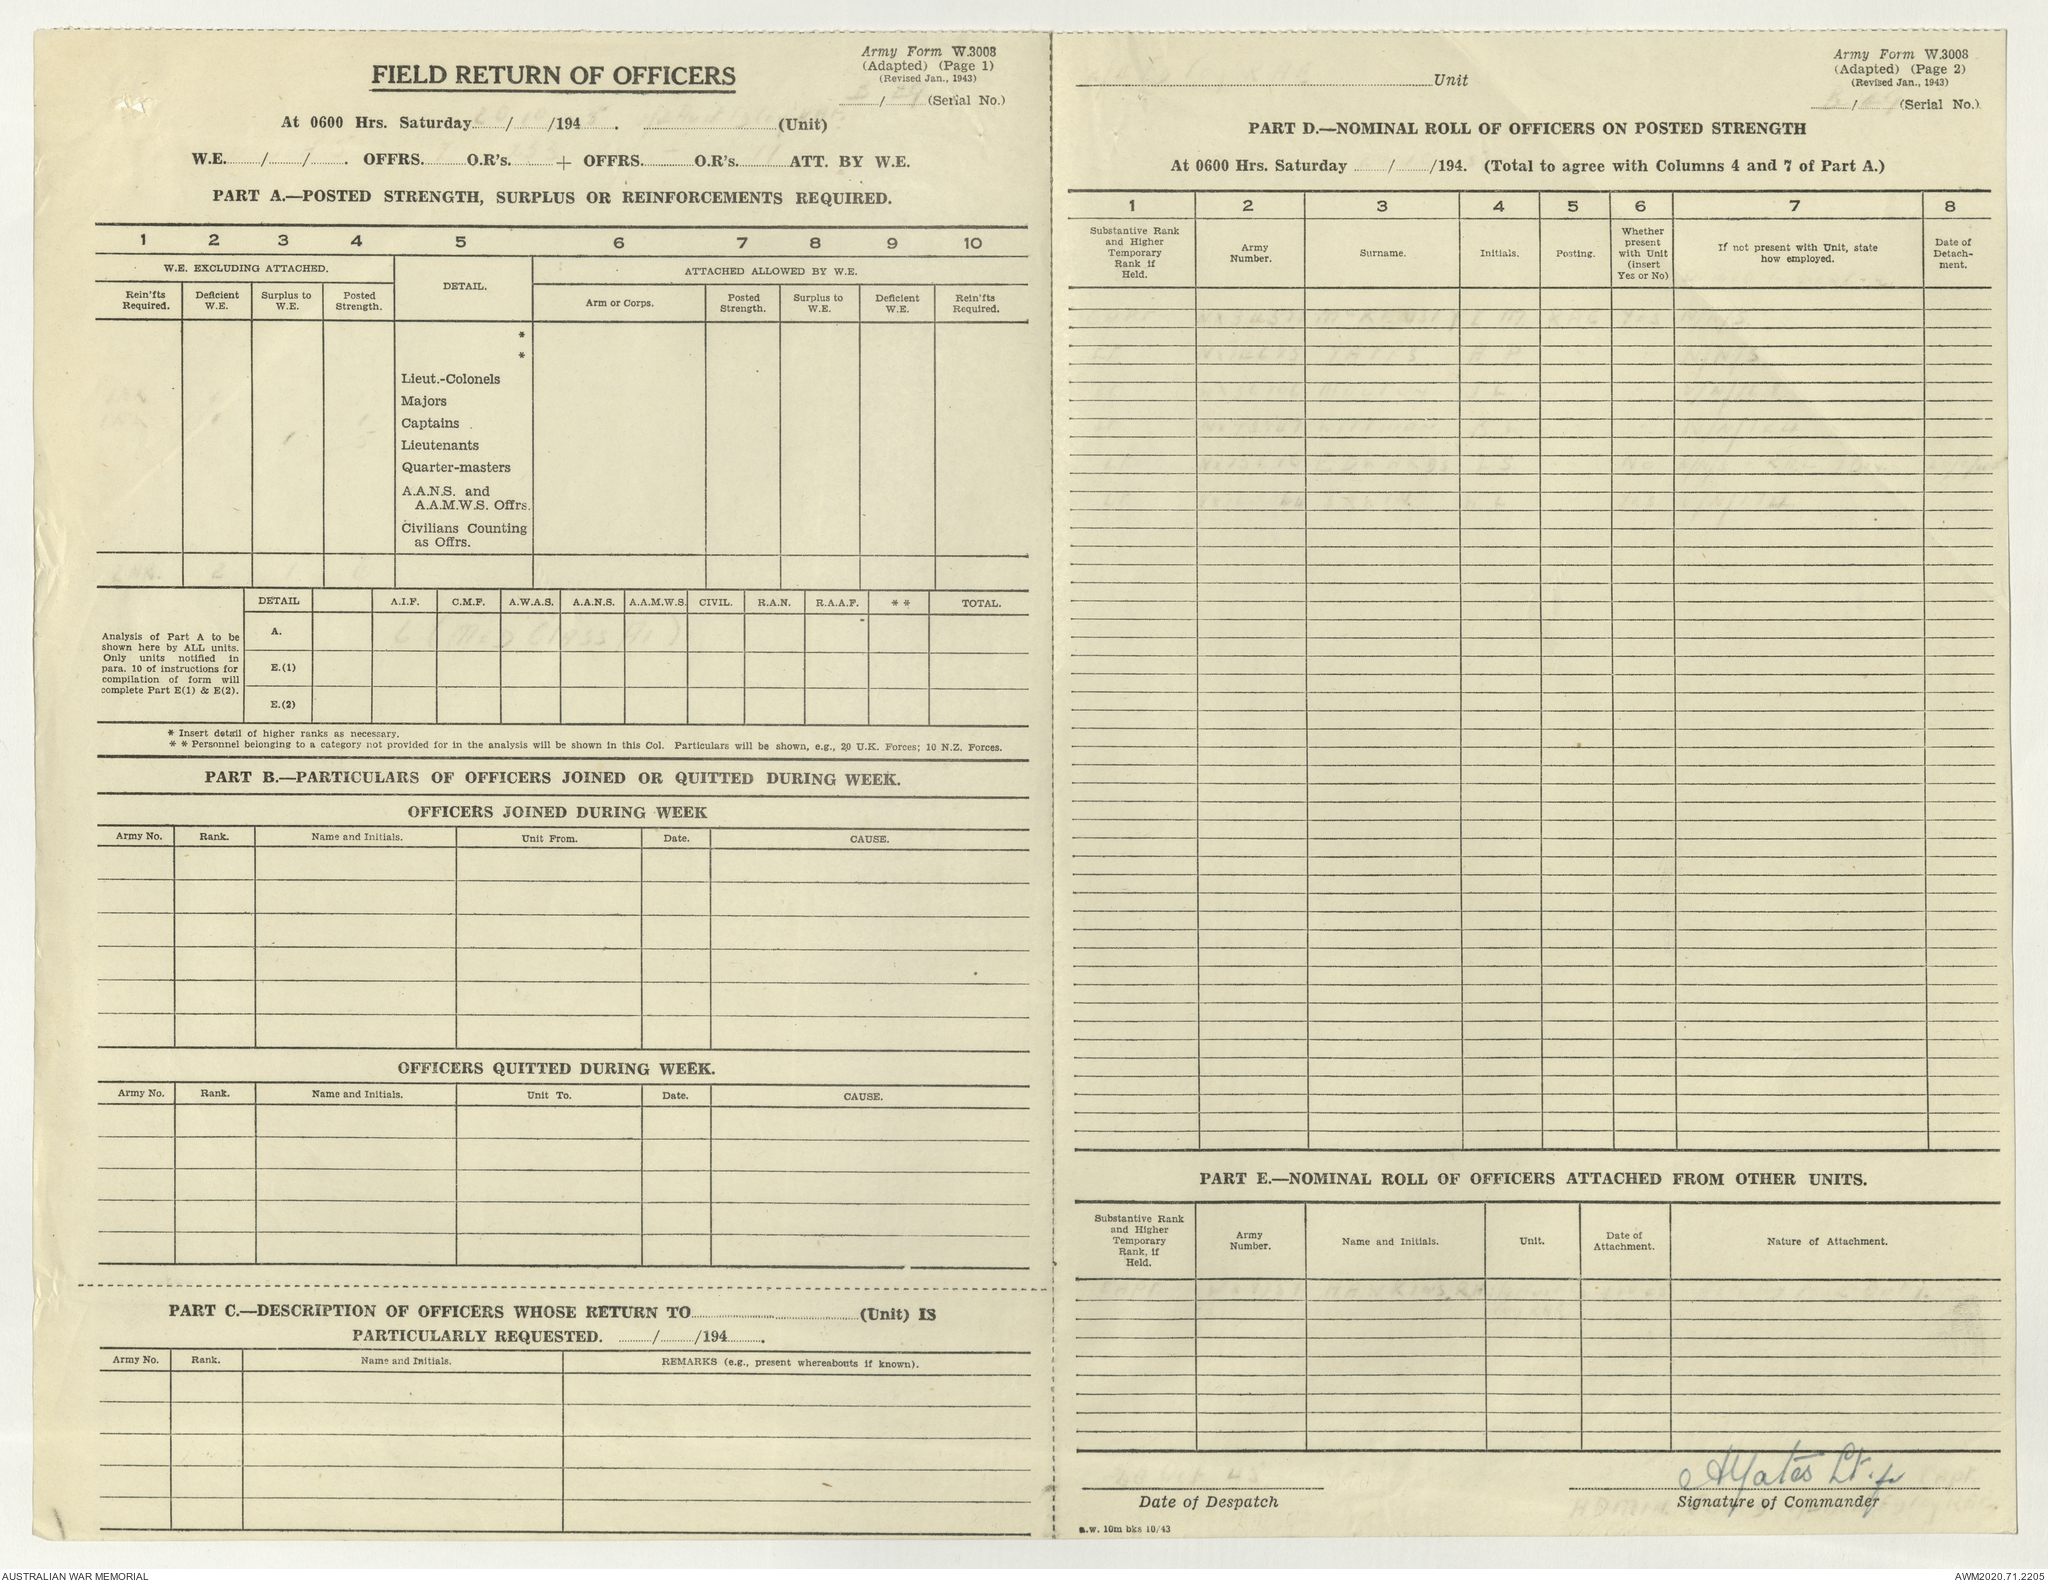 FIELD RETURN OF OFFICERS
Army Form W.3008
(Adapted) (Page 1)
(Revised Jan., 1943)
/ (Serial No.)
At 0600 Hrs. Saturday / /194 . (Unit)
W.E. / / . OFFRS. O.R's. + OFFRS. O.R's. ATT. BY W.E.
PART A.—POSTED STRENGTH, SURPLUS OR REINFORCEMENTS REQUIRED.
1 2 3 4 5 6 7 8 9 10
W.E. EXCLUDING ATTACHED.
DETAIL.
ATTACHED ALLOWED BY W.E.
Rein'fts Required.
Deficient W.E.
Surplus to W.E.
Posted Strength.
Arm or Corps.
Posted Strength.
Surplus to W.E.
Deficient W.E.
Rein'fts Required.
*
*
Lieut.-Colonels
Majors
Captains
Lieutenants
Quarter-masters
A.A.N.S. and
A.A.M.W.S. Offrs.
Civilians Counting
as Offrs.
DETAIL A.I.F. C.M.F. A.W.A.S. A.A.N.S. A.A.M.W.S. CIVIL. R.A.N. R.A.A.F. * * TOTAL.
Analysis of Part A to be
shown here by ALL units.
Only units notified in
para. 10 of instructions for
compilation of form will
complete Part E(1) & E(2).
A.
6 (Med Class A1)
E.(1)
E.(2)
* Insert detail of higher ranks as necessary.
* * Personnel belonging to a category not provided for in the analysis will be shown in this Col. Particulars will be shown, e.g., 20 U.K. Forces; 10 N.Z. Forces.
PART B.—PARTICULARS OF OFFICERS JOINED OR QUITTED DURING WEEK.
OFFICERS JOINED DURING WEEK
Army No. Rank. Name and Initials. Unit From. Date. CAUSE.
OFFICERS QUITTED DURING WEEK.
Army No. Rank. Name and Initials. Unit To. Date. CAUSE.
PART C.—DESCRIPTION OF OFFICERS WHOSE RETURN TO (Unit) IS
PARTICULARLY REQUESTED. / /194 .
Army No. Rank. Name and Initials. REMARKS (e.g., present whereabouts if known).
Unit
Army Form W.3008
(Adapted) (Page 2)
(Revised Jan., 1943)
/ (Serial No.)
PART D.—NOMINAL ROLL OF OFFICERS ON POSTED STRENGTH
At 0600 Hrs. Saturday / /194. (Total to agree with Columns 4 and 7 of Part A.)
1 2 3 4 5 6 7 8
Substantive Rank
and Higher
Temporary
Rank if
Held.
Army
Number.
Surname.
Initials.
Posting.
Whether
present
with Unit
(insert
Yes or No)
If not present with Unit, state
how employed.
Date of
Detach-
ment.
YATES
EDWARDS
PART E.—NOMINAL ROLL OF OFFICERS ATTACHED FROM OTHER UNITS.
Substantive Rank
and Higher
Temporary
Rank, if
Held.
Army
Number.
Name and Initials.
Unit.
Date of
Attachment.
Nature of Attachment.
AYates Lt. f
Date of Despatch
Signature of Commander
a.w. 10m bks 10/43
AUSTRALIAN WAR MEMORIAL
AWM2020.71.2205